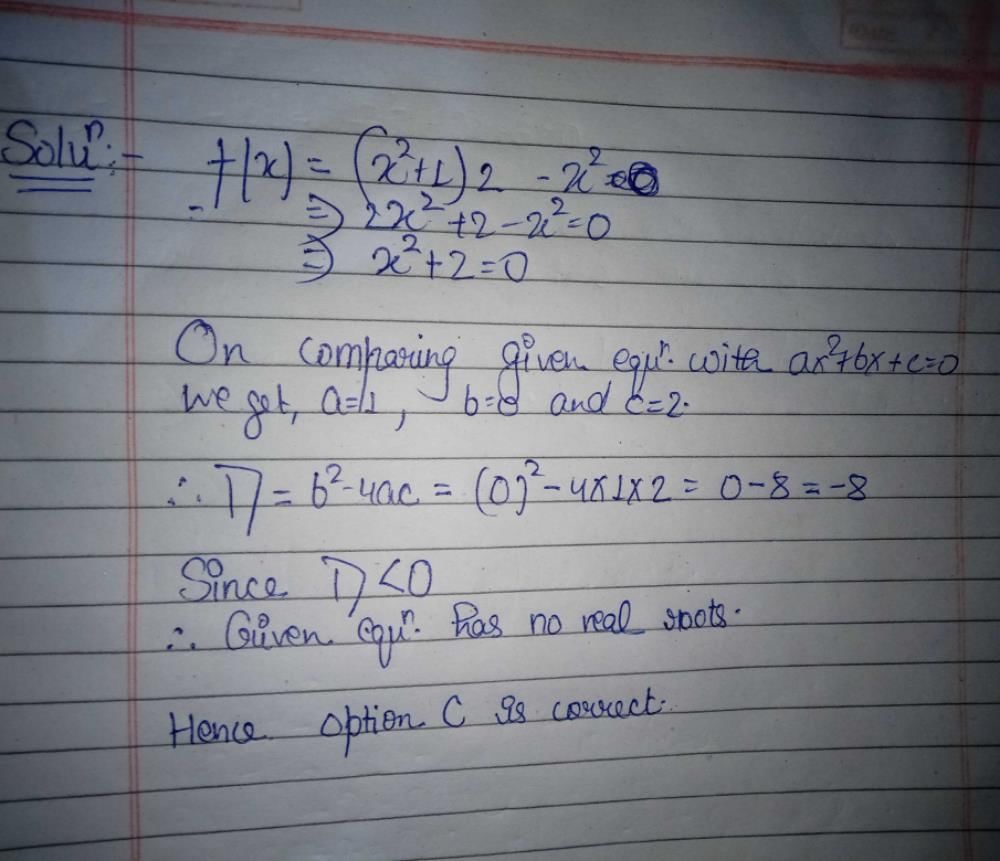 Soluⁿ:- f(x) = (x²+1)2 - x²=0
⇒ 2x²+2-x²=0
⇒ x²+2=0
On comparing given equⁿ. with ax²+bx+c=0
we get, a=1, b=0 and c=2.
∴ D = b²-4ac = (0)²-4×1×2 = 0-8 = -8
Since D<0
∴ Given equⁿ. has no real roots.
Hence option C is correct.